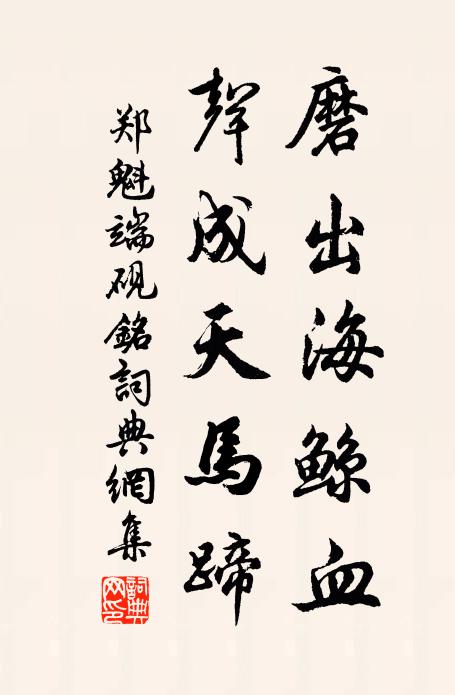 磨出海鲸血
聲成天馬蹄
郑魁端砚銘詞典網集
詞典
网印